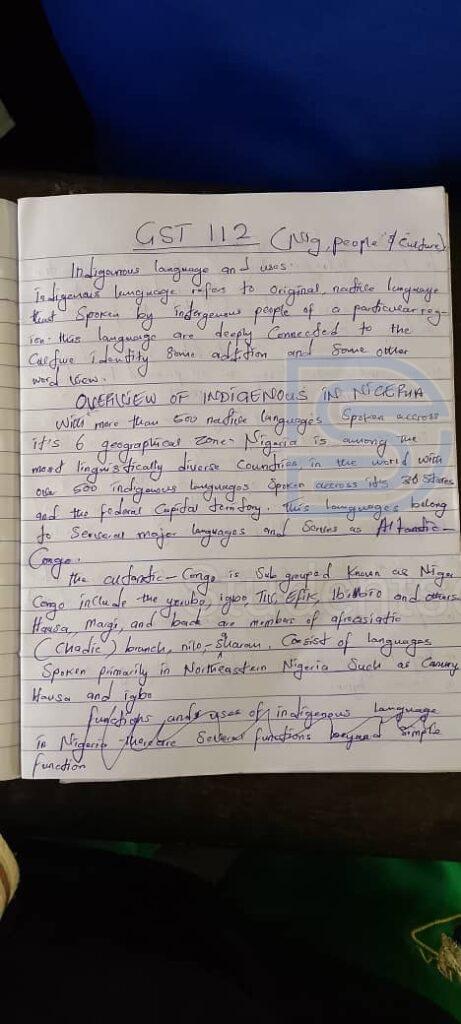 GST 112 (Nig, people & Culture)
Indiganous language and uses.
Indigenous language refers to original, native language
that Spoken by indergenous people of a particular reg-
ion. this language are deeply Connected to the
Culture identity Some addition and Some other
word view.
OVERVIEW OF INDIGENOUS IN NIGERIA
With more than 500 native languages Spoken accross
it's 6 geographical Zone. Nigeria is among the
most linguistically diverse Countries in the world with
over 500 indigenous languages Spoken accross its 36 States
and the federal Capital territory. this languages belong
to Senseral major languages and Serves as Atlantic-
Congo.
the altantic-Congo is Sub grouped Known as Niger
Congo include the yoruba, igbo, Tiv, Efik, Ibibio and others
Hausa, and are members of afroasiatic
(Chadic) branch, nilo-Sharan. Consist of languages
Spoken primarily in Northeastern Nigeria Such as Canury
Hausa and igbo
functions and uses of indigenous language
in Nigeria there are Several functions beyond Simple
function